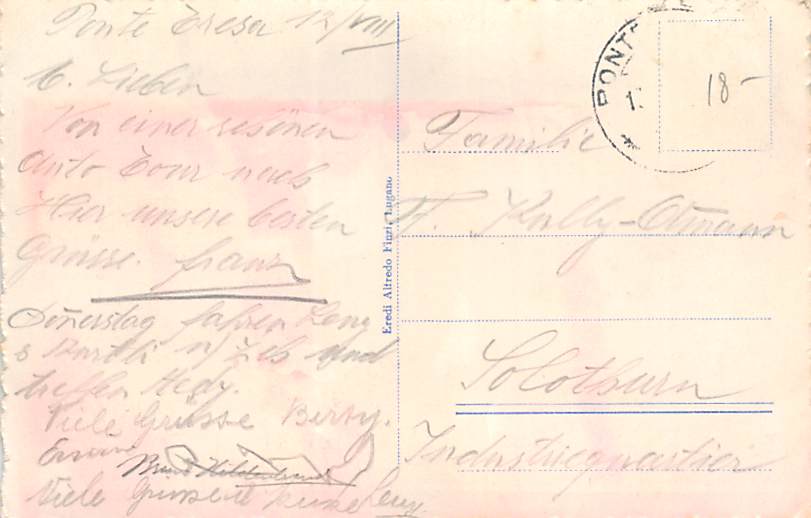 Ponte Tresa 12/VIII
M. Lieben
Von einer schönen
Auto Tour nach
Hier unsere besten
Grüsse. Franz
Donerstag fahren Leny
& Bartli n/ und
treffen Hedy.
Viele Grüsse Berty.
Erwin
Hildebrand
Viele Grüsse Leny
Eredi Alfredo Finzi, Lugano
PONTE
18-
Familie
Kully-
Solothurn
Industriequartier